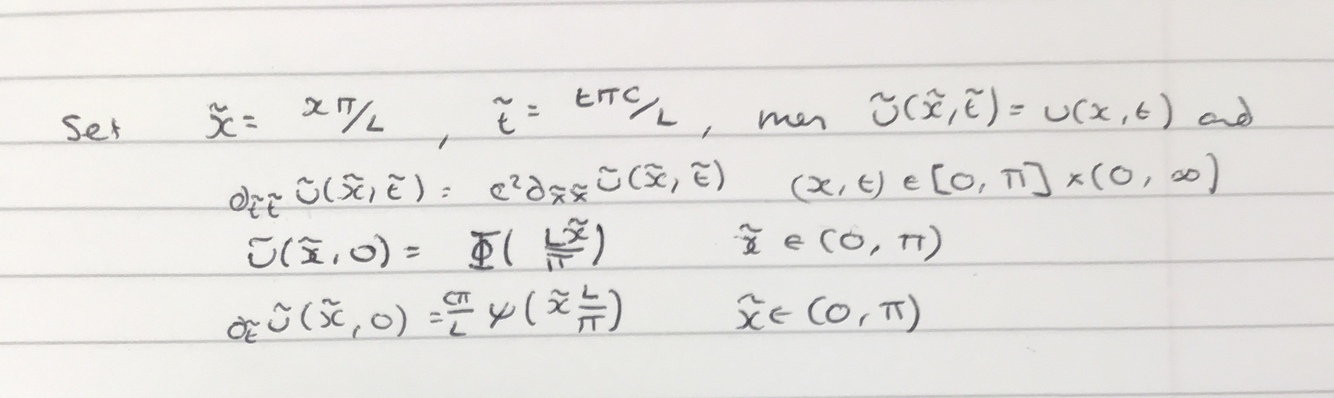 Set x̃ = xπ/L , t̃ = tπc/L , then ũ(x̃,t̃) = u(x,t) and
∂t̃t̃ ũ(x̃,t̃) = c²∂x̃x̃ ũ(x̃,t̃) (x,t) ∈ [0,π] × (0,∞)
ũ(x̃,0) = Φ(Lx̃/π) x̃ ∈ (0,π)
∂t̃ ũ(x̃,0) = cπ/L ψ(x̃ L/π) x̃ ∈ (0,π)